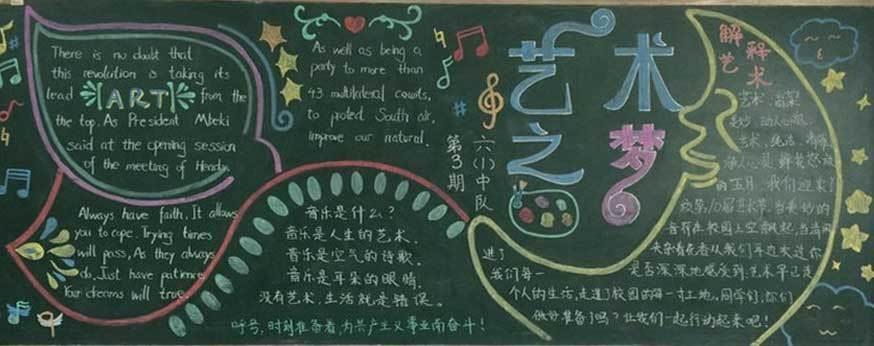 There is no doubt that
this revolution is taking its
lead ART from the
the top. As President Mbeki
said at the opening session
of the meeting of Heads
As well as being a
party to more than
43 multilateral
to South air,
improve our natural.
艺术
之梦
第3期
六(1)中队
解释
艺术
Always have faith. It allows
you to cope. Trying times
will pass, As they always
do. Just have patience
Your dreams will true.
音乐是什么?
音乐是人生的艺术.
音乐是空气的诗歌.
音乐是耳朵的眼睛.
没有艺术,生活就是错误。
呼号,时刻准备着,为共产主义事业而奋斗!
艺术
艺术,纯洁
的五月,我们迎来了
届艺术节,当美妙的
音符在校园上空
从我们身边走过你
是否深深地感受到艺术早已走
进了
我们每一
个人的生活,走进了校园的每一寸土地。同学们,你们
做好准备了吗?让我们一起行动起来吧!